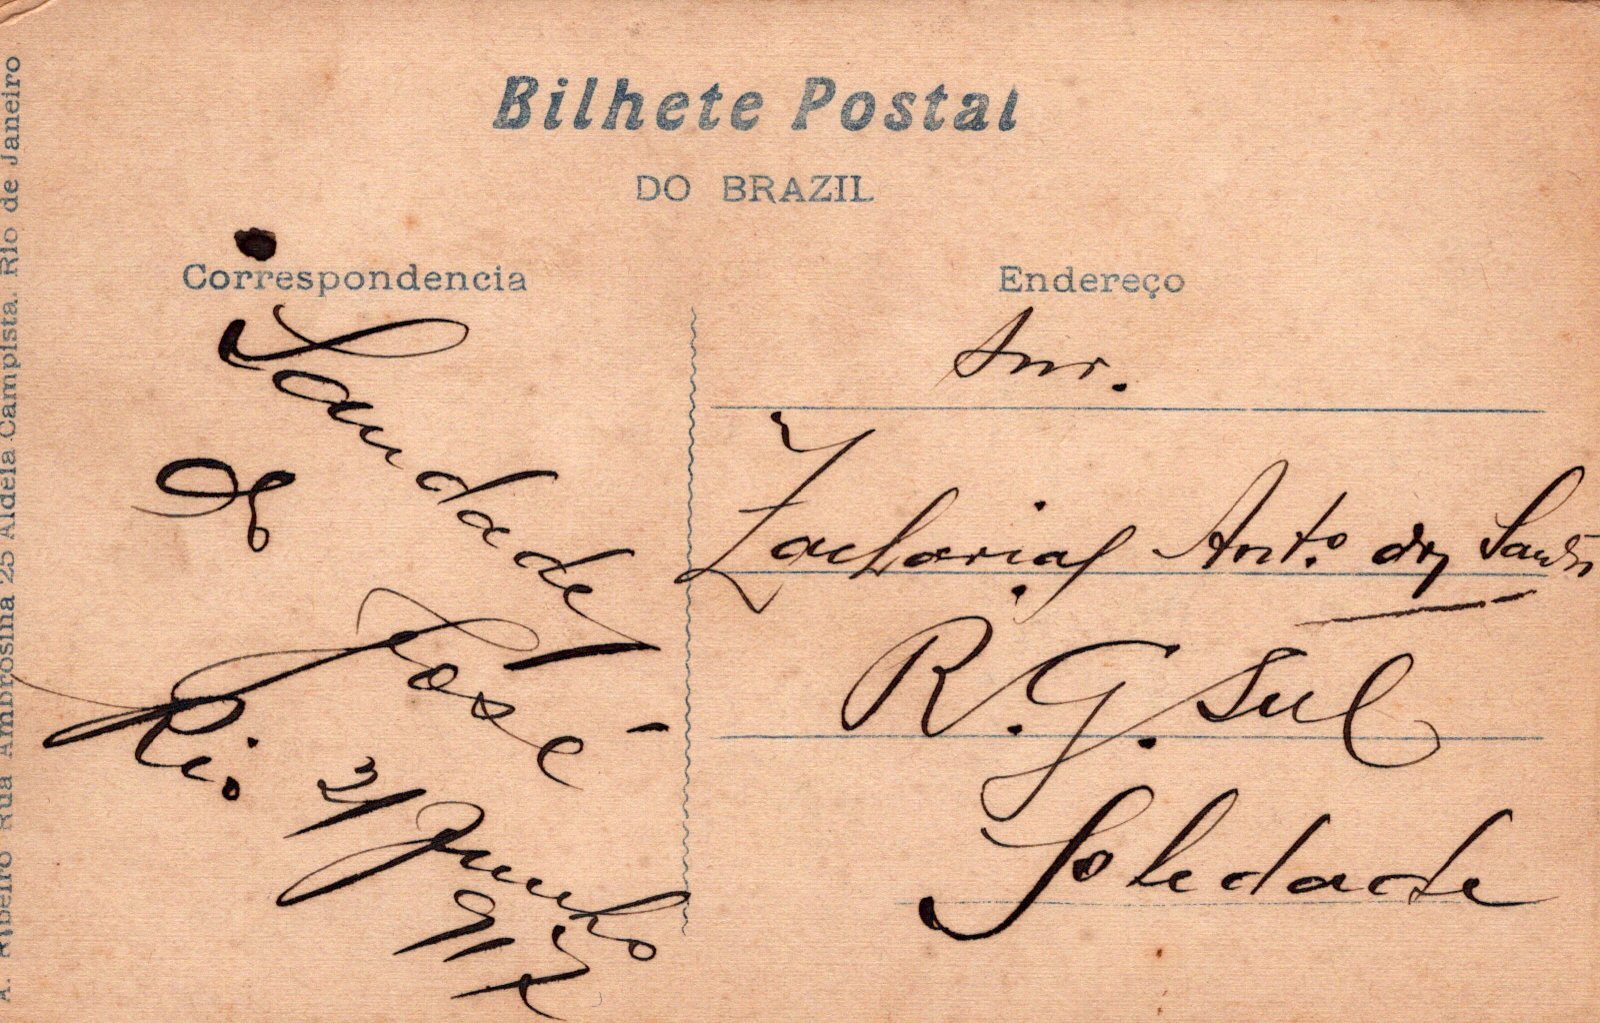 Bilhete Postal
DO BRAZIL
Correspondencia
Saudades
de
José
Rio 3/Junho
917
Endereço
Snr.
Zacharias Ant.º dos Santos
R. G. Sul
Soledade
A. Ribeiro Rua Ambrosina 25 Aldêla Campista. Rio de Janeiro